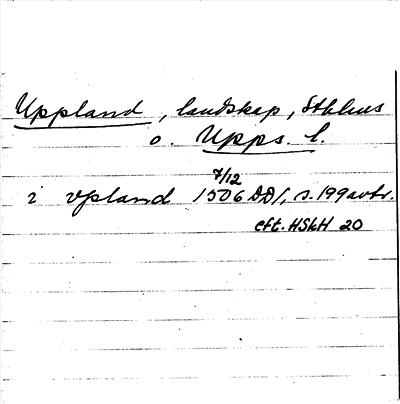 Uppland, landskap, Sthlms
o. Upps. l.
i vpland 7/12 1506 DD1, s. 199 avtr.
eft. HSkH 20